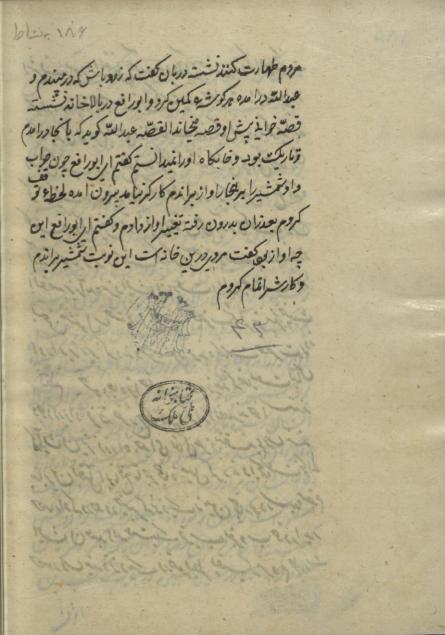 مردم طهارت کنند نشست دربان گفت که زود باش که در میبندم و
عبدالله درآمده در گوشه کمین کرد و ابورافع در بالاخانه نشسته
قصه خوانی پیش او قصه میخواند القصه عبدالله گوید که بانجا درآمدم
تاریک بود و خابگاه او را نمیدانستم گفتم ای ابورافع چون جواب
داد شمشیر را بر هنجار آواز براندم کارگر نیامد بیرون آمده لحظهٔ توقف
کردم بعد از آن بدرون رفته تغییر آواز دادم و گفتم ای ابورافع این
چه آواز بود گفت مردی درین خانه است این نوبت شمشیر براندم
و کارش را تمام کردم
۴۳
کتابخانه
ملی ملک